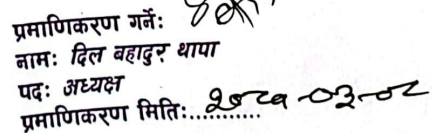 प्रमाणिकरण गर्नेः
नामः दिल बहादुर थापा
पदः अध्यक्ष
प्रमाणिकरण मितिः............ २०८१-०३-०८